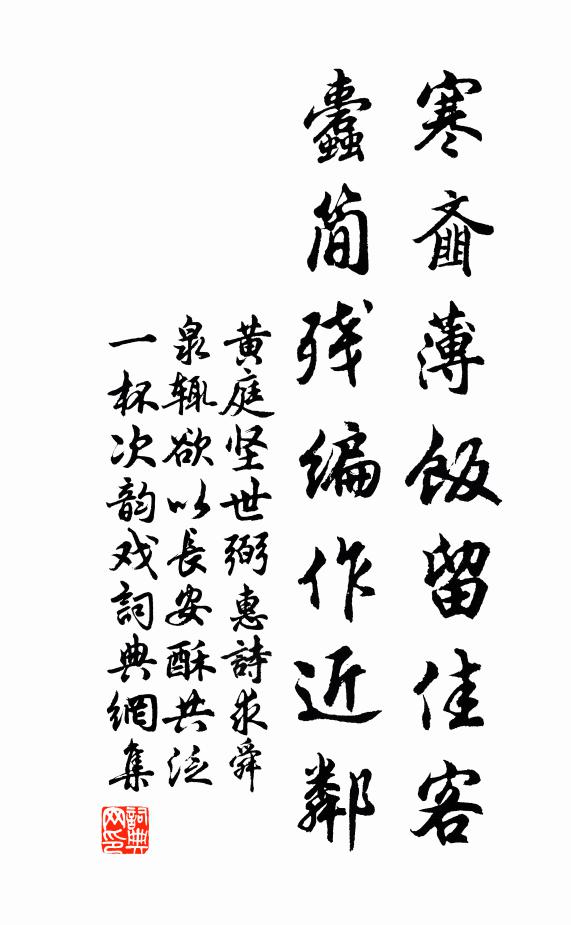 寒齑薄飯留佳客
蠹简残编作近鄰
黄庭坚世弼惠詩求舜
泉辄欲以長安酥共泛
一杯次韵戏詞典網集
詞典网印